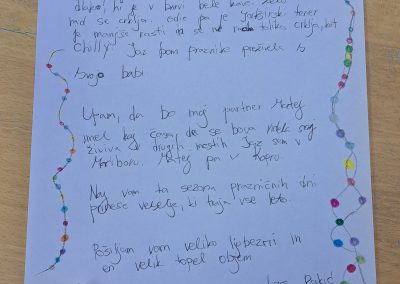 dlakami, ki je v barvi bele kave. Zelo
rad se crklja. Edie pa je jorkširski terier
je manjše rasti in se ne toliko crklja, kot
Chilly. Jaz bom praznike preživela s
svojo babi.
Upam, da bo moj partner Matej
imel kaj časa, da se bova
živiva v drugih mestih. Jaz sem v
Mariboru, Matej pa v Kopru.
Naj vam ta sezona prazničnih dni
prinese veselje, ki traja vse leto.
Pošiljam vam veliko ljubezni in
en velik topel objem.